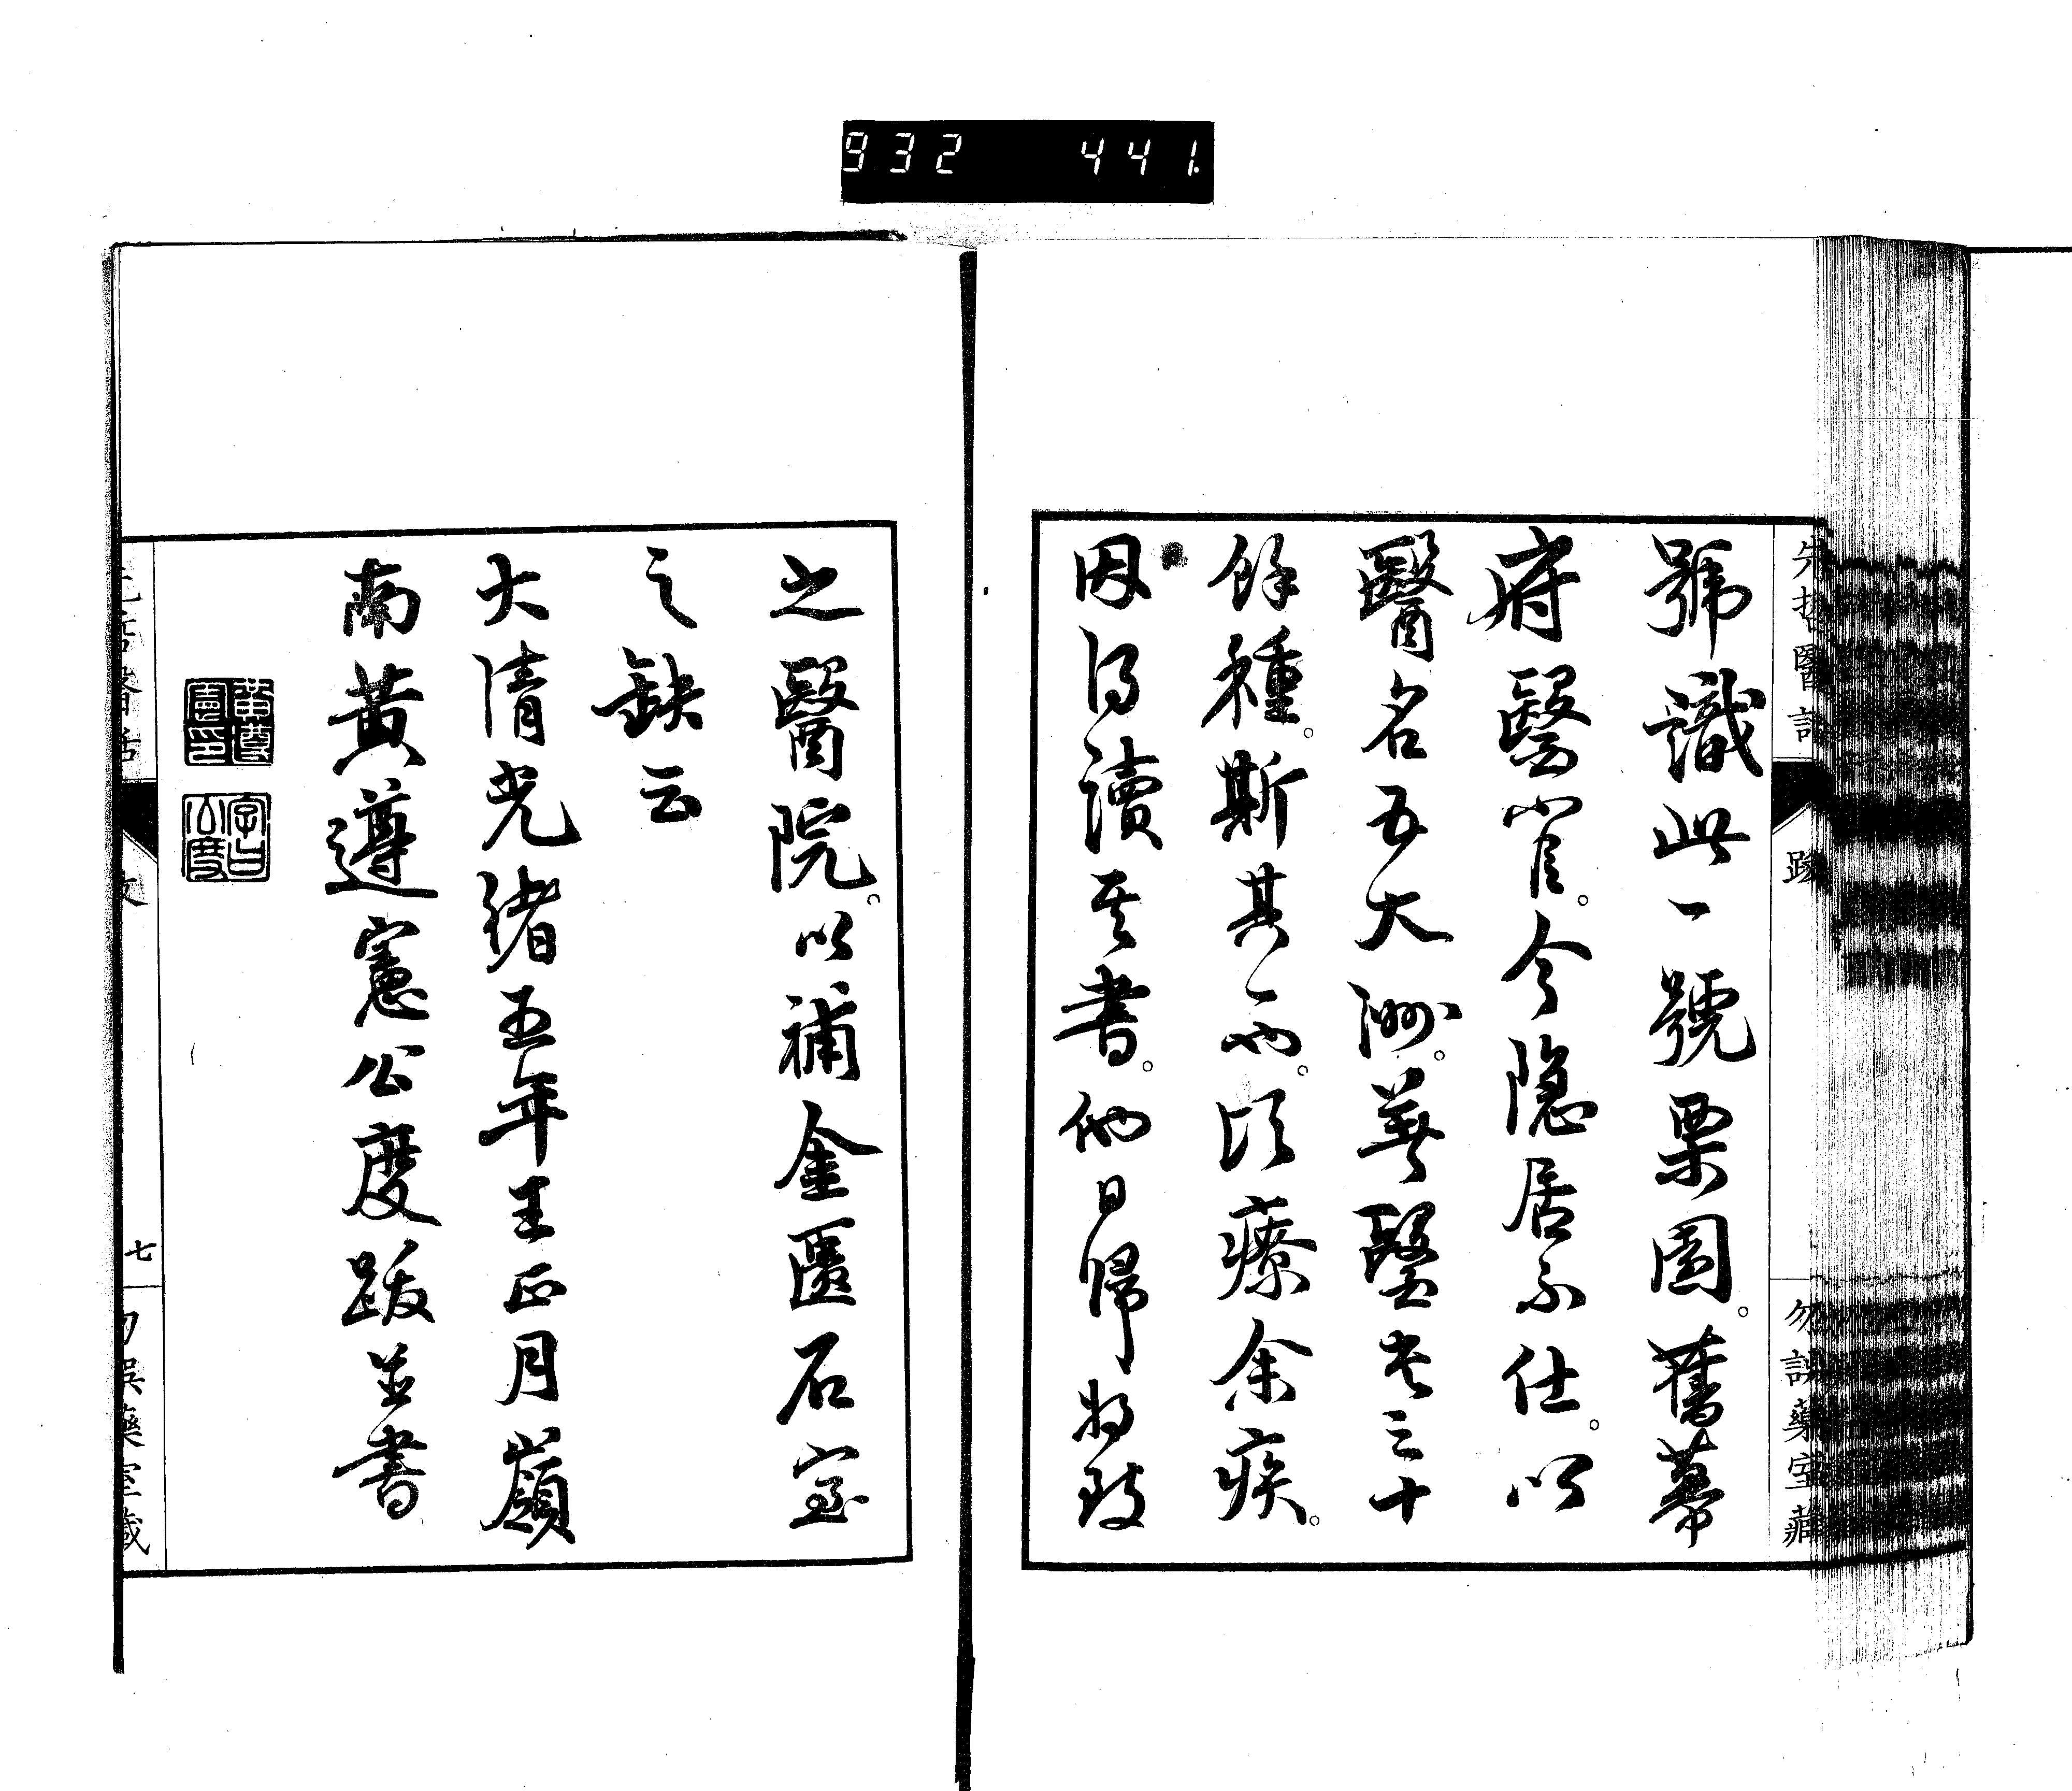 932 441.
先哲醫話
跋
勿誤藥室藏
號識此一號栗園。舊幕
府醫官。今隱居不仕。以
醫名五大洲。著醫書三十
餘種。斯其一也。頃療余疾。
因得讀其書。他日歸將致
之醫院。以補金匱石室
之缺云
大清光緒五年王正月嶺
南黃遵憲公度跋並書
黃遵憲印
字曰公度
先哲醫話
七
勿誤藥室藏